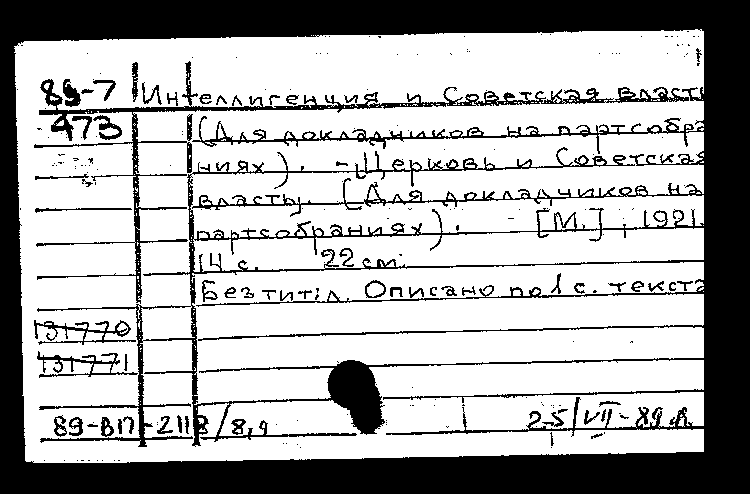 89-7 Интеллигенция и Советская власть
473 (Для докладчиков на партсобра
ниях). - Церковь и Советская
власть. (Для докладчиков на
партсобраниях). [М.], 1921.
14 с. 22 см.
Без тит. л. Описано по 1 с. текста
131770
131771
89-ВП-2118/8,9 25/VII-89 г.